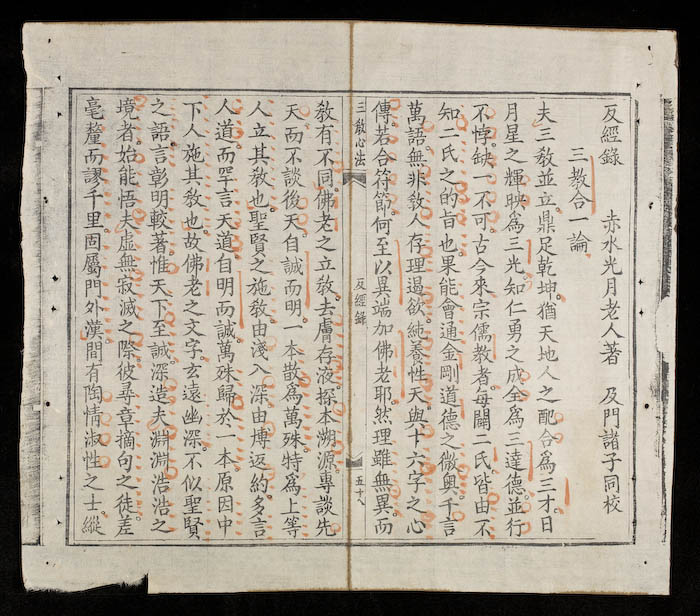 反經錄 赤水光月老人著 及門諸子同校
三教合一論
夫三敎並立鼎足乾坤猶天地人之配合爲三才日
月星之輝映爲三光知仁勇之成全爲三達德並行
不悖缺一不可古今來宗儒敎者每闢二氏皆由不
知二氏之的旨也果能會通金剛道德之微奧千言
萬語無非敎人存理遏欲純養性天與十六字之心
傳若合符節何至以異端加佛老耶然理雖無異而
三敎心法 反經錄 五十八
敎有不同佛老之立敎去膚存液探本溯源專談先
天而不談後天自誠而明一本散爲萬殊特爲上等
人立其敎也聖賢之施敎由淺入深由博返約多言
人道而罕言天道自明而誠萬殊歸於一本原因中
下人施其敎也故佛老之文字玄遠幽深不似聖賢
之語言彰明較著惟天下至誠深造夫淵淵浩浩之
境者始能悟夫虛無寂滅之際彼尋章摘句之徒差
毫釐而謬千里固屬門外漢間有陶情淑性之士縱